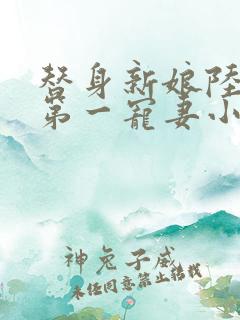 替身新娘陆
第一宠妻小
神兔子威
未经同意禁止转载